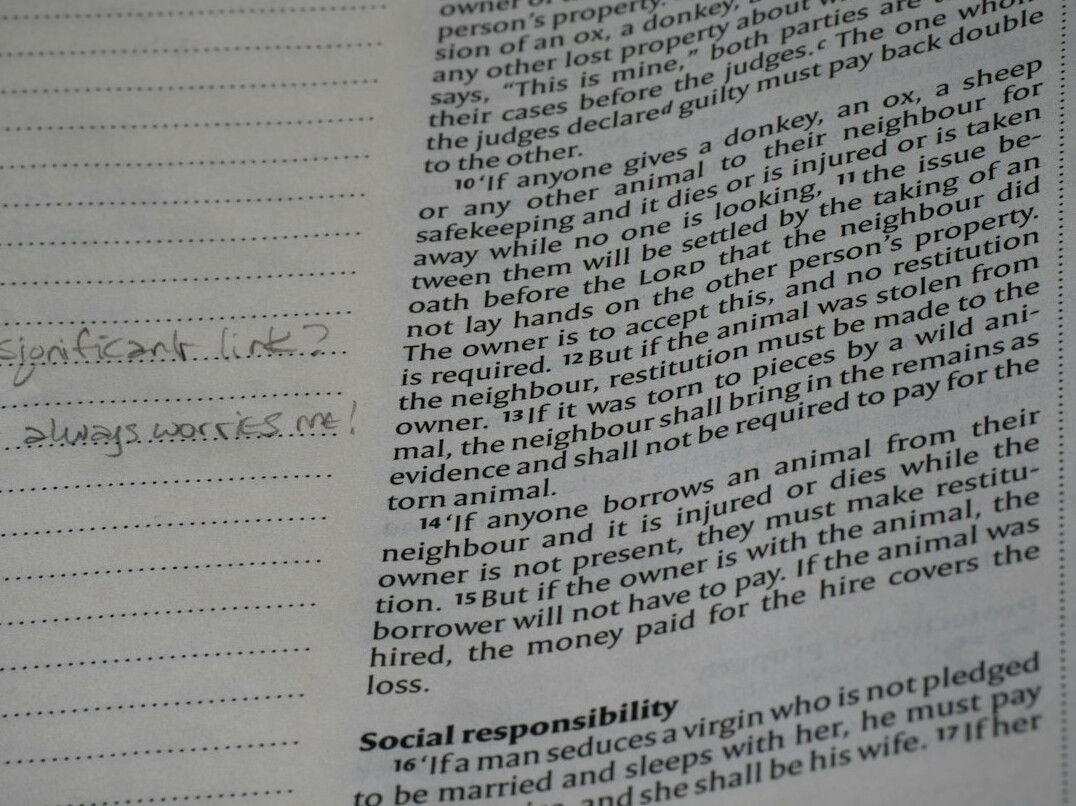 significant link?
always worries me!
person's property.
sion of an ox, a donkey,
any other lost property about
says, “This is mine,” both parties are
their cases before the judges.c The one whom
the judges declared guilty must pay back double
to the other.
10 ‘If anyone gives a donkey, an ox, a sheep
or any other animal to their neighbour for
safekeeping and it dies or is injured or is taken
away while no one is looking, 11 the issue be-
tween them will be settled by the taking of an
oath before the LORD that the neighbour did
not lay hands on the other person’s property.
The owner is to accept this, and no restitution
is required. 12 But if the animal was stolen from
the neighbour, restitution must be made to the
owner. 13 If it was torn to pieces by a wild ani-
mal, the neighbour shall bring in the remains as
evidence and shall not be required to pay for the
torn animal.
14 ‘If anyone borrows an animal from their
neighbour and it is injured or dies while the
owner is not present, they must make restitu-
tion. 15 But if the owner is with the animal, the
borrower will not have to pay. If the animal was
hired, the money paid for the hire covers the
loss.
Social responsibility
16 ‘If a man seduces a virgin who is not pledged
to be married and sleeps with her, he must pay
and she shall be his wife. 17 If her